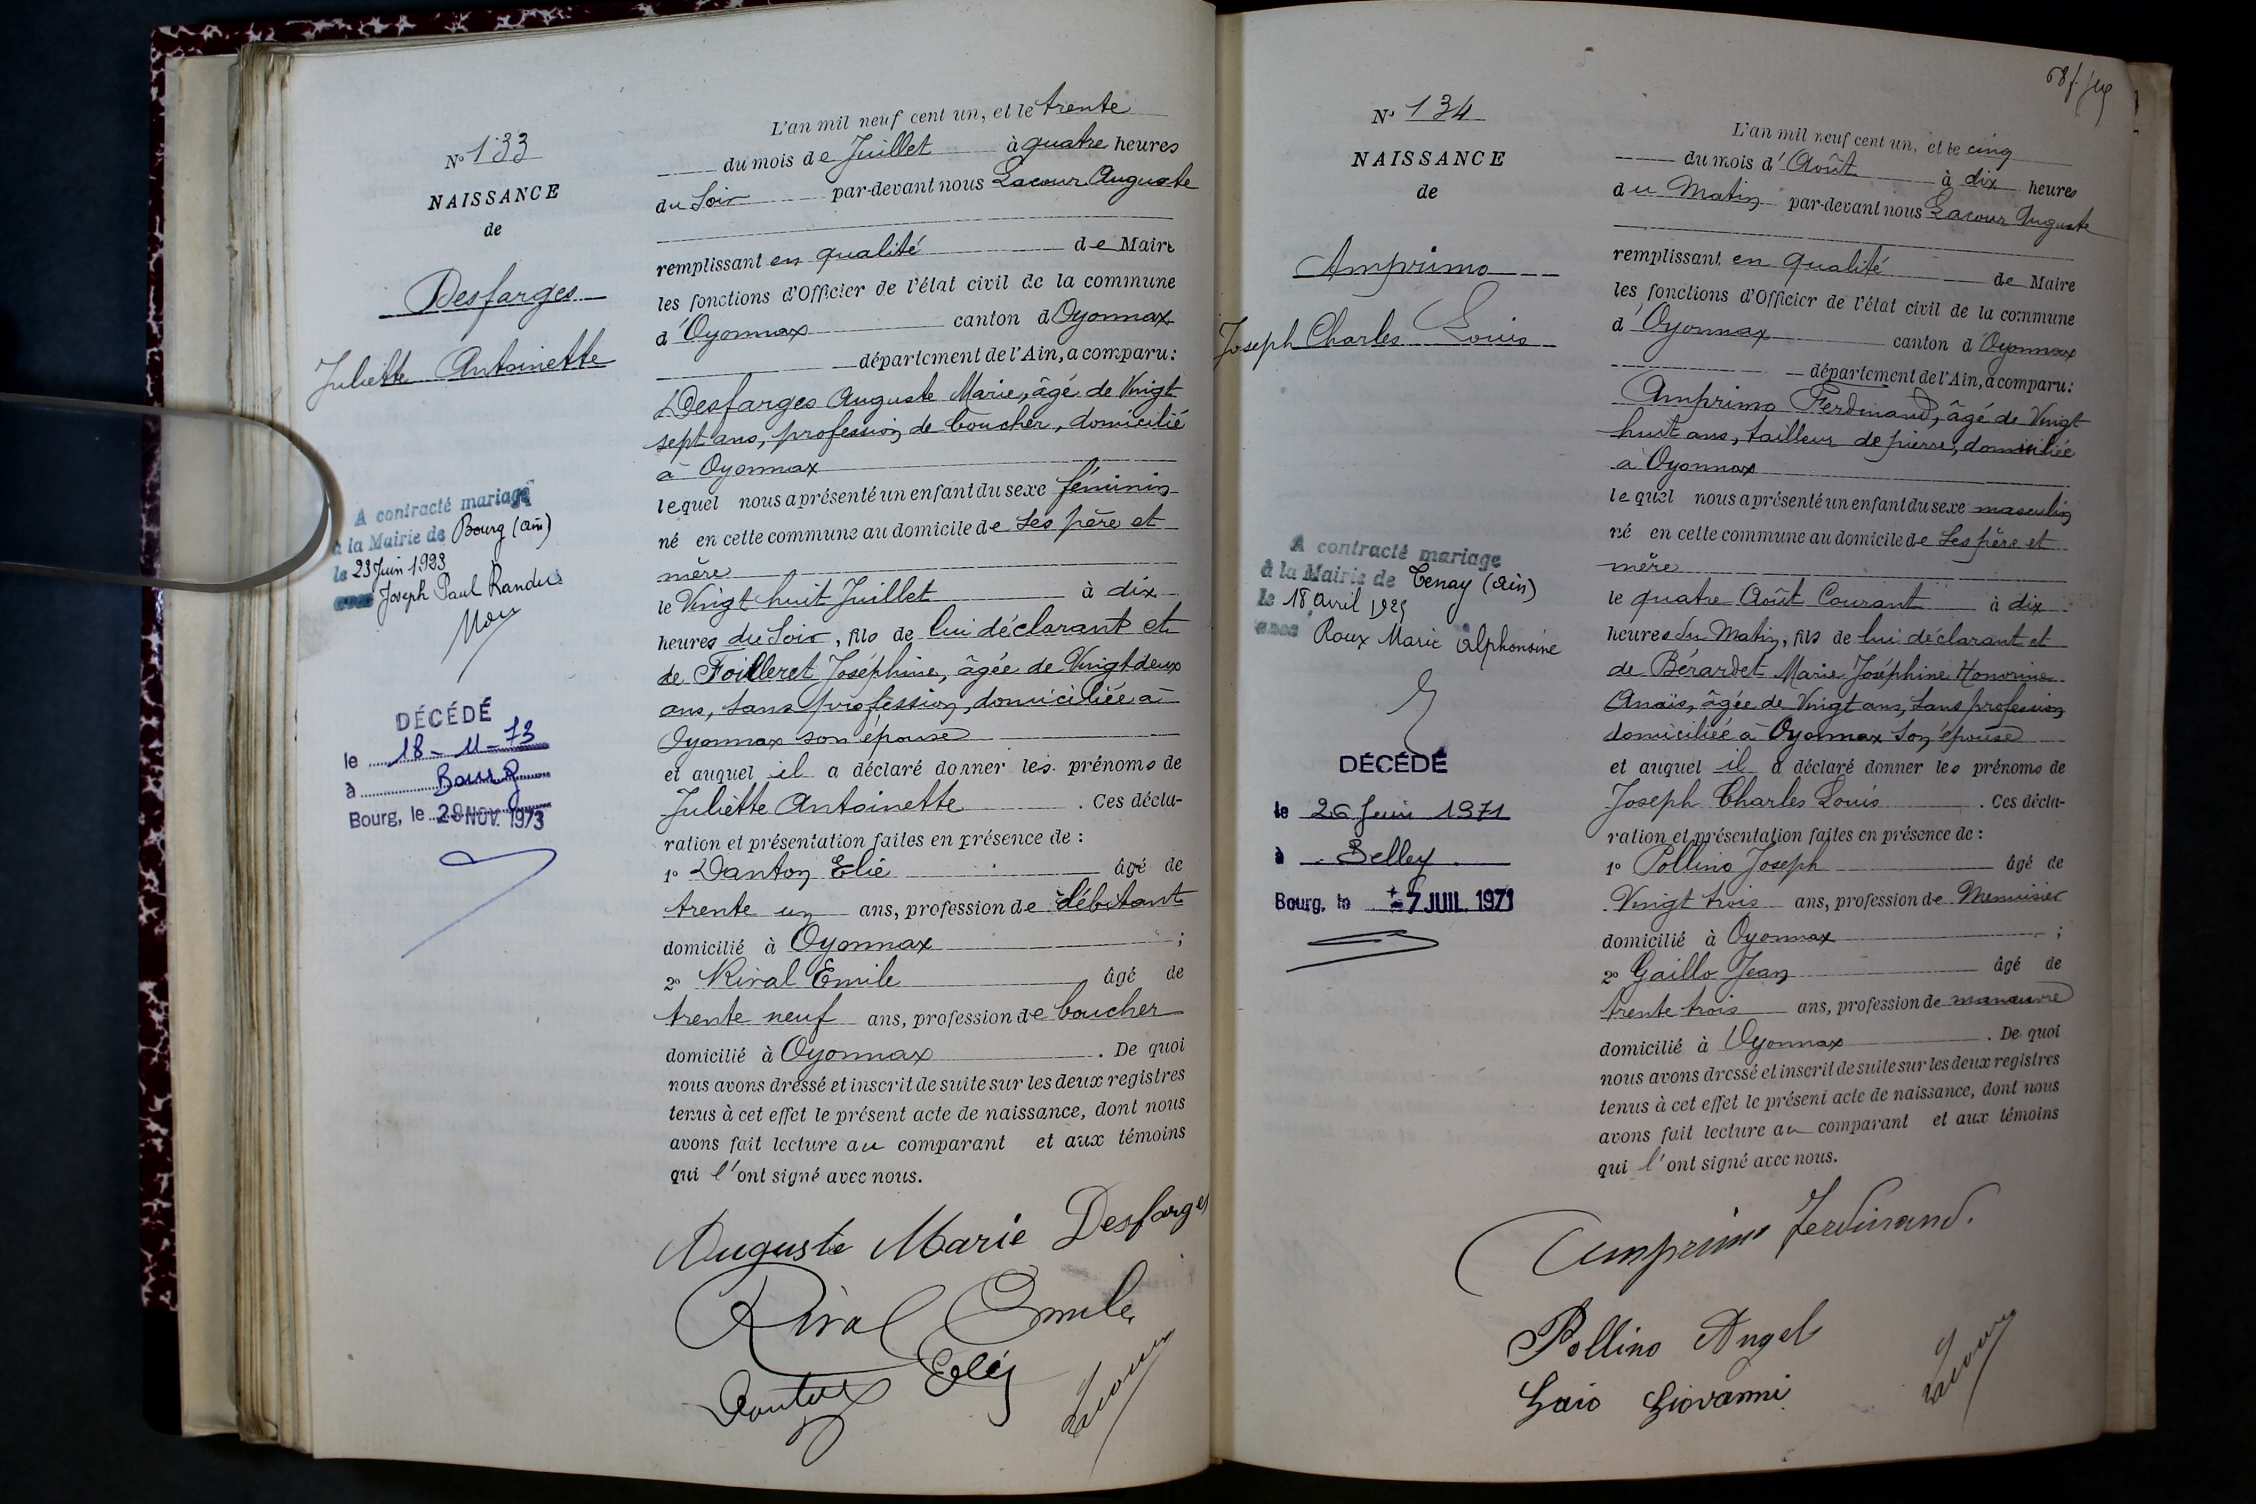 N° 133
NAISSANCE
de
Desfarges
Juliette Antoinette
A contracté mariage
à la Mairie de Bourg (Ain)
le 23 Juin 1923
avec Joseph Paul Randu
DÉCÉDÉ
le 18-11-73
à Bourg
Bourg, le 29 NOV. 1973
L'an mil neuf cent un, et le trente
du mois de Juillet à quatre heures
du Soir par-devant nous Lacour Auguste
remplissant en qualité de Maire
les fonctions d'Officier de l'état civil de la commune
d'Oyonnax canton d'Oyonnax
département de l'Ain, a comparu:
Desfarges Auguste Marie, âgé de Vingt
sept ans, profession de boucher, domicilié
à Oyonnax
lequel nous a présenté un enfant du sexe féminin
né en cette commune au domicile de Ses père et
mère
le Vingt huit Juillet à dix
heures du Soir, fils de lui déclarant et
de Foilleret Joséphine, âgée de Vingt deux
ans, sans profession, domiciliée à
Oyonnax son épouse
et auquel il a déclaré donner les prénoms de
Juliètte Antoinette. Ces décla-
ration et présentation faites en présence de :
1° Danton Elie âgé de
trente un ans, profession de débitant
domicilié à Oyonnax ;
2° Rival Emile âgé de
trente neuf ans, profession de boucher
domicilié à Oyonnax. De quoi
nous avons dressé et inscrit de suite sur les deux registres
tenus à cet effet le présent acte de naissance, dont nous
avons fait lecture au comparant et aux témoins
qui l'ont signé avec nous.
Auguste Marie Desfarges
Rival Emile
Danton Eléi
Lacour
N° 134
NAISSANCE
de
Amprimo
Joseph Charles Louis
A contracté mariage
à la Mairie de Tenay (Ain)
le 18 avril 1925
avec Roux Marie Alphonsine
DÉCÉDÉ
le 26 Juin 1971
à Belley
Bourg, le 7 JUIL. 1971
68f.
L'an mil neuf cent un, et le cinq
du mois d'Août à dix heures
du Matin par-devant nous Lacour Auguste
remplissant en qualité de Maire
les fonctions d'Officier de l'état civil de la commune
d'Oyonnax canton d'Oyonnax
département de l'Ain, a comparu:
Amprimo Ferdinand, âgé de Vingt
huit ans, tailleur de pierre, domiciliée
à Oyonnax
lequel nous a présenté un enfant du sexe masculin
né en cette commune au domicile de Ses père et
mère
le quatre Août Courant à dix
heures du Matin, fils de lui déclarant et
de Bérardet Marie Joséphine Honorine
Anaïs, âgée de Vingt ans, sans profession
domiciliée à Oyonnax son épouse
et auquel il a déclaré donner les prénoms de
Joseph Charles Louis. Ces décla-
ration et présentation faites en présence de :
1° Pollino Joseph âgé de
Vingt trois ans, profession de Menuisier
domicilié à Oyonnax ;
2° Gaillo Jean âgé de
trente trois ans, profession de manœuvre
domicilié à Oyonnax. De quoi
nous avons dressé et inscrit de suite sur les deux registres
tenus à cet effet le présent acte de naissance, dont nous
avons fait lecture au comparant et aux témoins
qui l'ont signé avec nous.
Amprimo Ferdinand.
Pollino Angel
Gaio Giovanni
Lacour